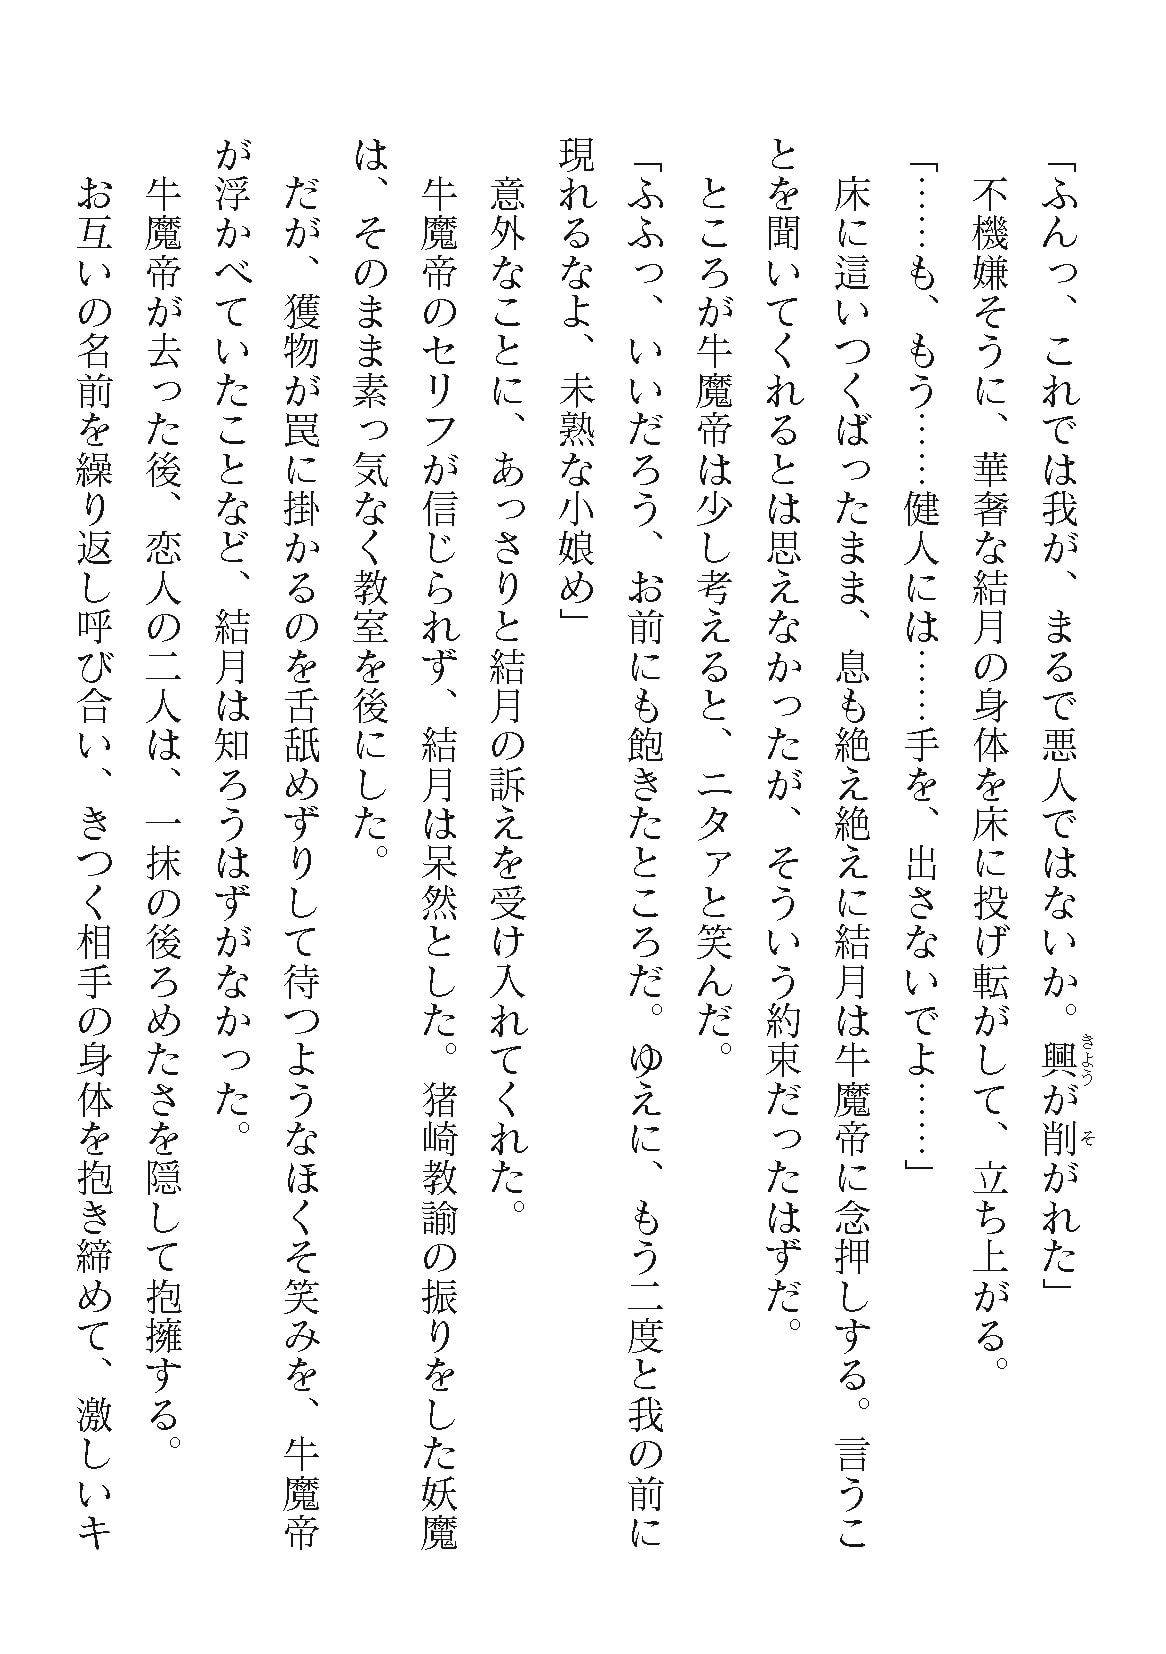 「ふんっ、これでは我が、まるで悪人ではないか。興が削がれた」
きょう
そ
　不機嫌そうに、華奢な結月の身体を床に投げ転がして、立ち上がる。
「……も、もう……健人には……手を、出さないでよ……」
　床に這いつくばったまま、息も絶え絶えに結月は牛魔帝に念押しする。言うこ
とを聞いてくれるとは思えなかったが、そういう約束だったはずだ。
　ところが牛魔帝は少し考えると、ニタァと笑んだ。
「ふふっ、いいだろう、お前にも飽きたところだ。ゆえに、もう二度と我の前に
現れるなよ、未熟な小娘め」
　意外なことに、あっさりと結月の訴えを受け入れてくれた。
　牛魔帝のセリフが信じられず、結月は呆然とした。猪崎教諭の振りをした妖魔
は、そのまま素っ気なく教室を後にした。
　だが、獲物が罠に掛かるのを舌舐めずりして待つようなほくそ笑みを、牛魔帝
が浮かべていたことなど、結月は知ろうはずがなかった。
　牛魔帝が去った後、恋人の二人は、一抹の後ろめたさを隠して抱擁する。
　お互いの名前を繰り返し呼び合い、きつく相手の身体を抱き締めて、激しいキ